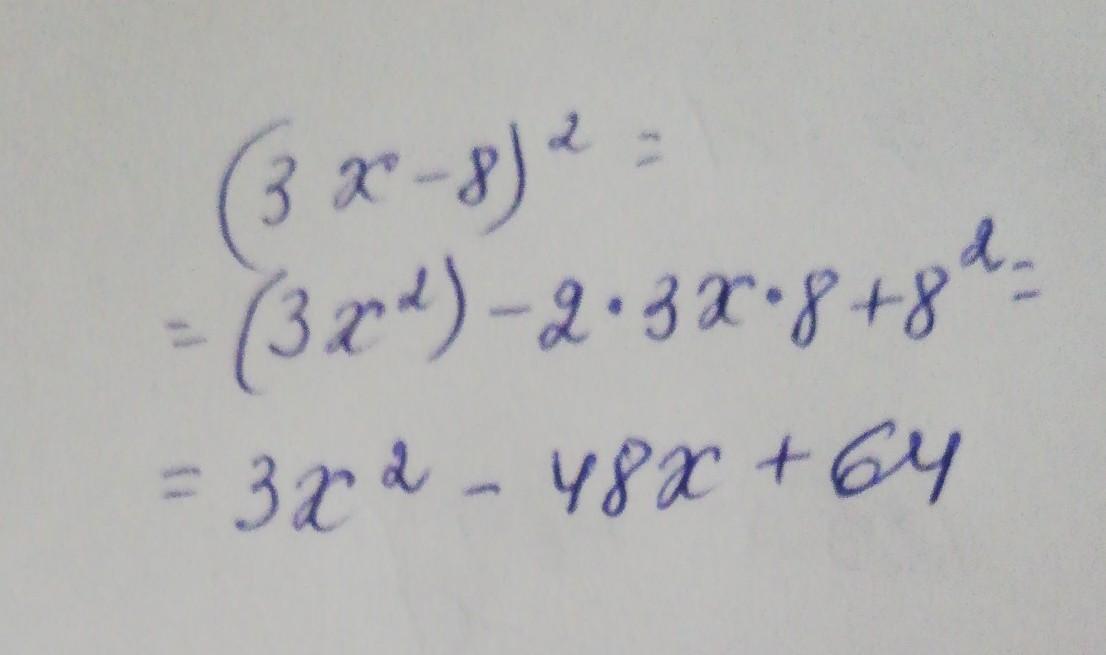 (3x-8)² =
= (3x²) - 2·3x·8+8² =
= 3x² - 48x + 64